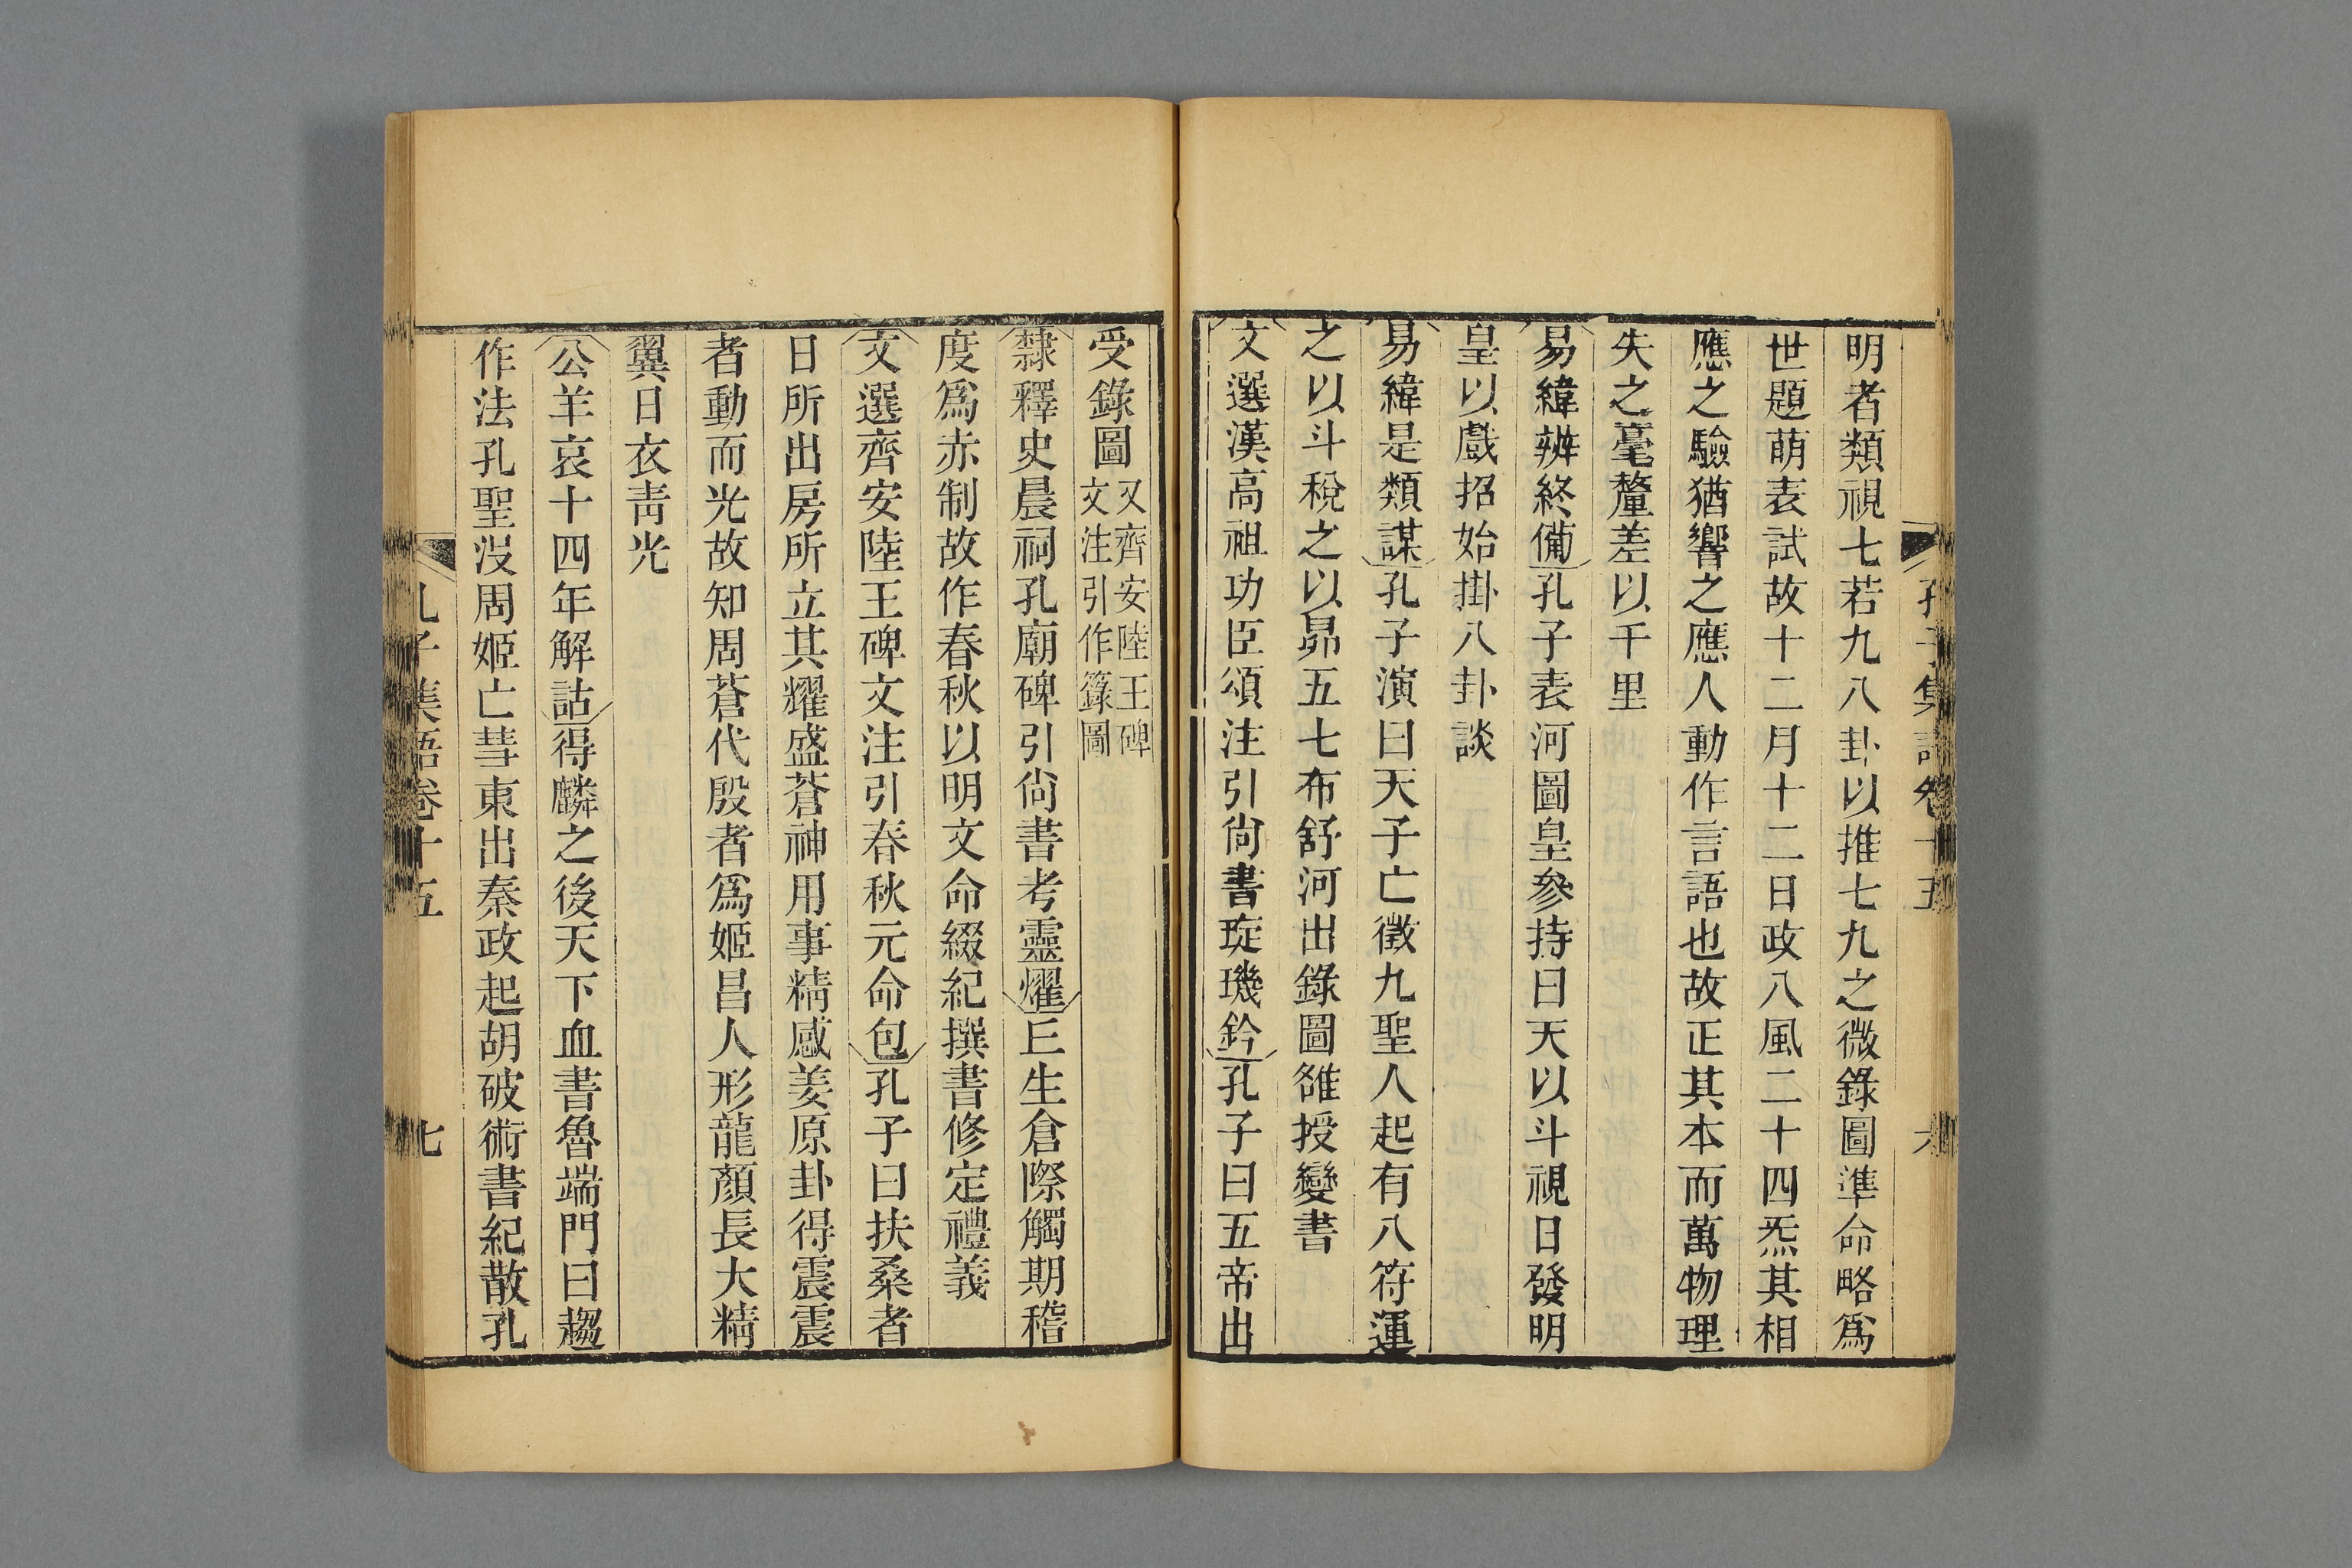 孔子集語卷十五 六
明者類視七若九八卦以推七九之微錄圖準命略爲
世題萌表試故十二月十二日政八風二十四炁其相
應之驗猶響之應人動作言語也故正其本而萬物理
失之毫釐差以千里
易緯辨終備孔子表河圖皇參持曰天以斗視日發明
皇以戲招始掛八卦談
易緯是類謀孔子演曰天子亡徵九聖人起有八符運
之以斗稅之以昴五七布舒河出錄圖雒授變書
文選漢高祖功臣頌注引尙書琁璣鈐孔子曰五帝出
受錄圖又齊安陸王碑
文注引作籙圖
隸釋史晨祠孔廟碑引尙書考靈燿丘生倉際觸期稽
度爲赤制故作春秋以明文命綴紀撰書修定禮義
文選齊安陸王碑文注引春秋元命包孔子曰扶桑者
日所出房所立其耀盛蒼神用事精感姜原卦得震震
者動而光故知周蒼代殷者爲姬昌人形龍顏長大精
翼日衣靑光
公羊哀十四年解詁得麟之後天下血書魯端門曰趨
作法孔聖沒周姬亡彗東出秦政起胡破術書紀散孔
孔子集語卷十五 七